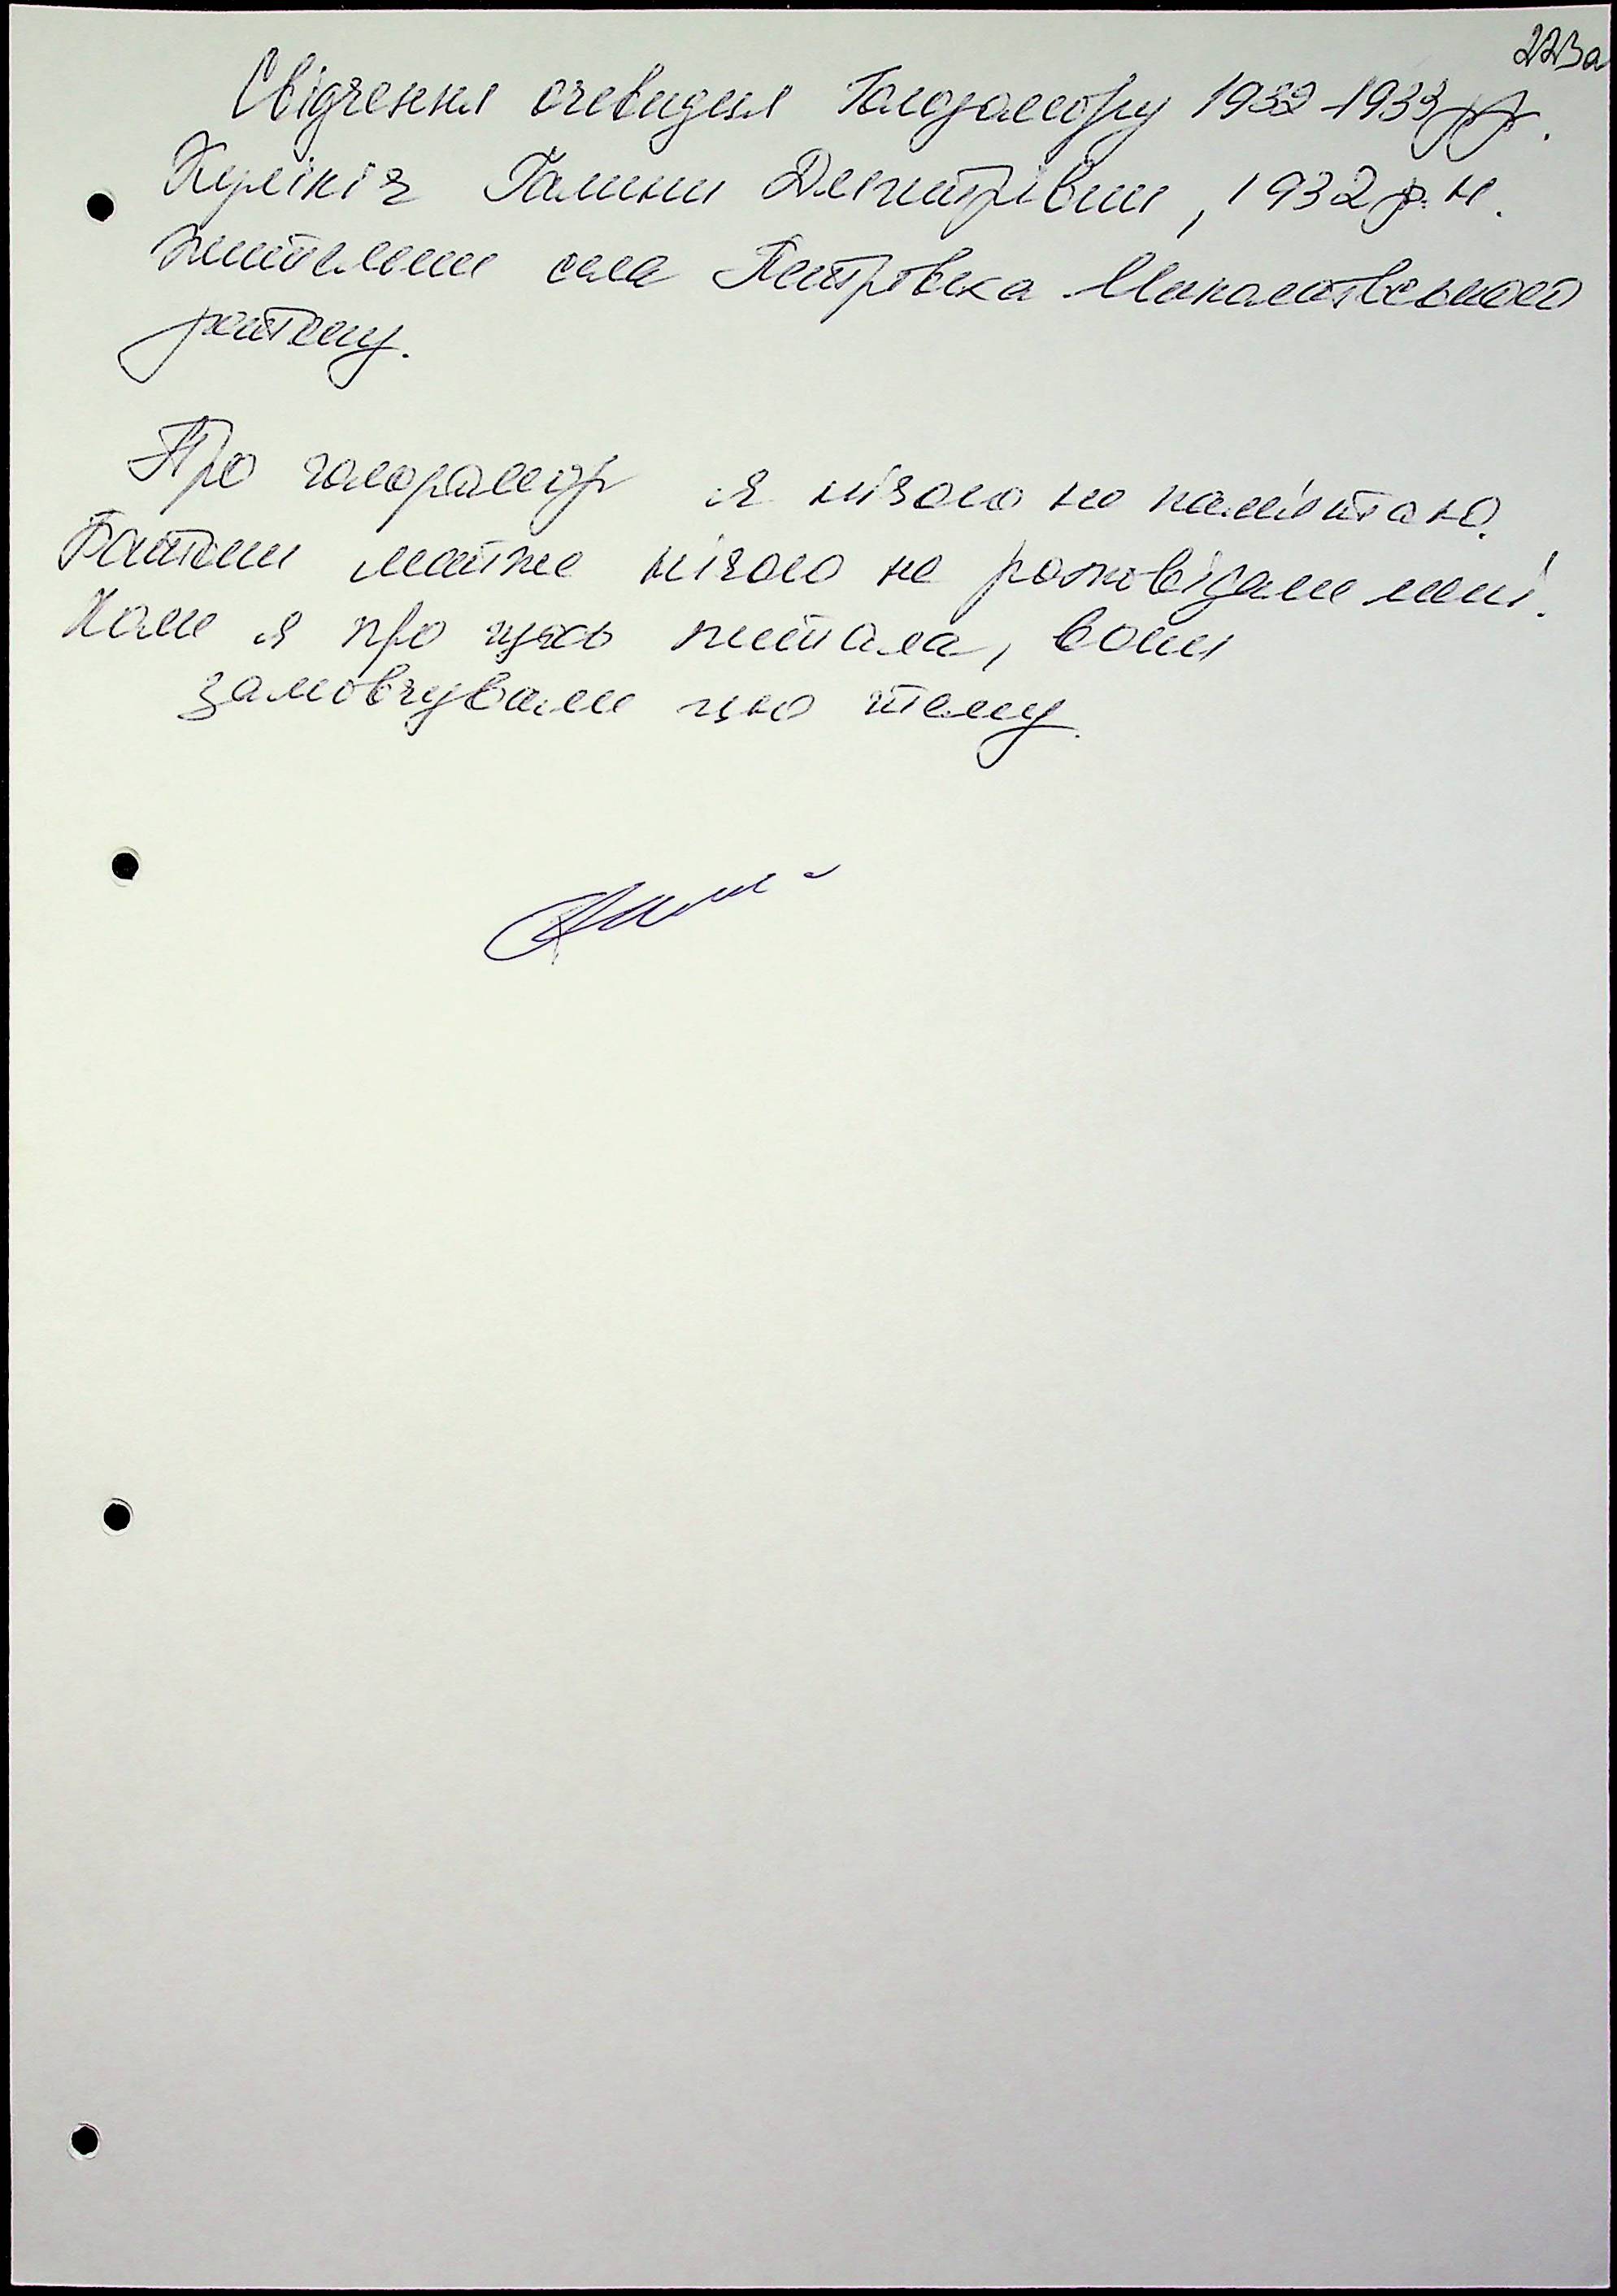 223а
Свідчення очевидця Голодомору 1932-1933рр.
Галини Дмитрівни, 1932 р.н.
жительки села Петрівка Миколаївського
району.
Про голодомор я нічого не пам'ятаю.
Батьки майже нічого не розповідали мені.
Коли я про щось питала, вони
замовчували цю тему.